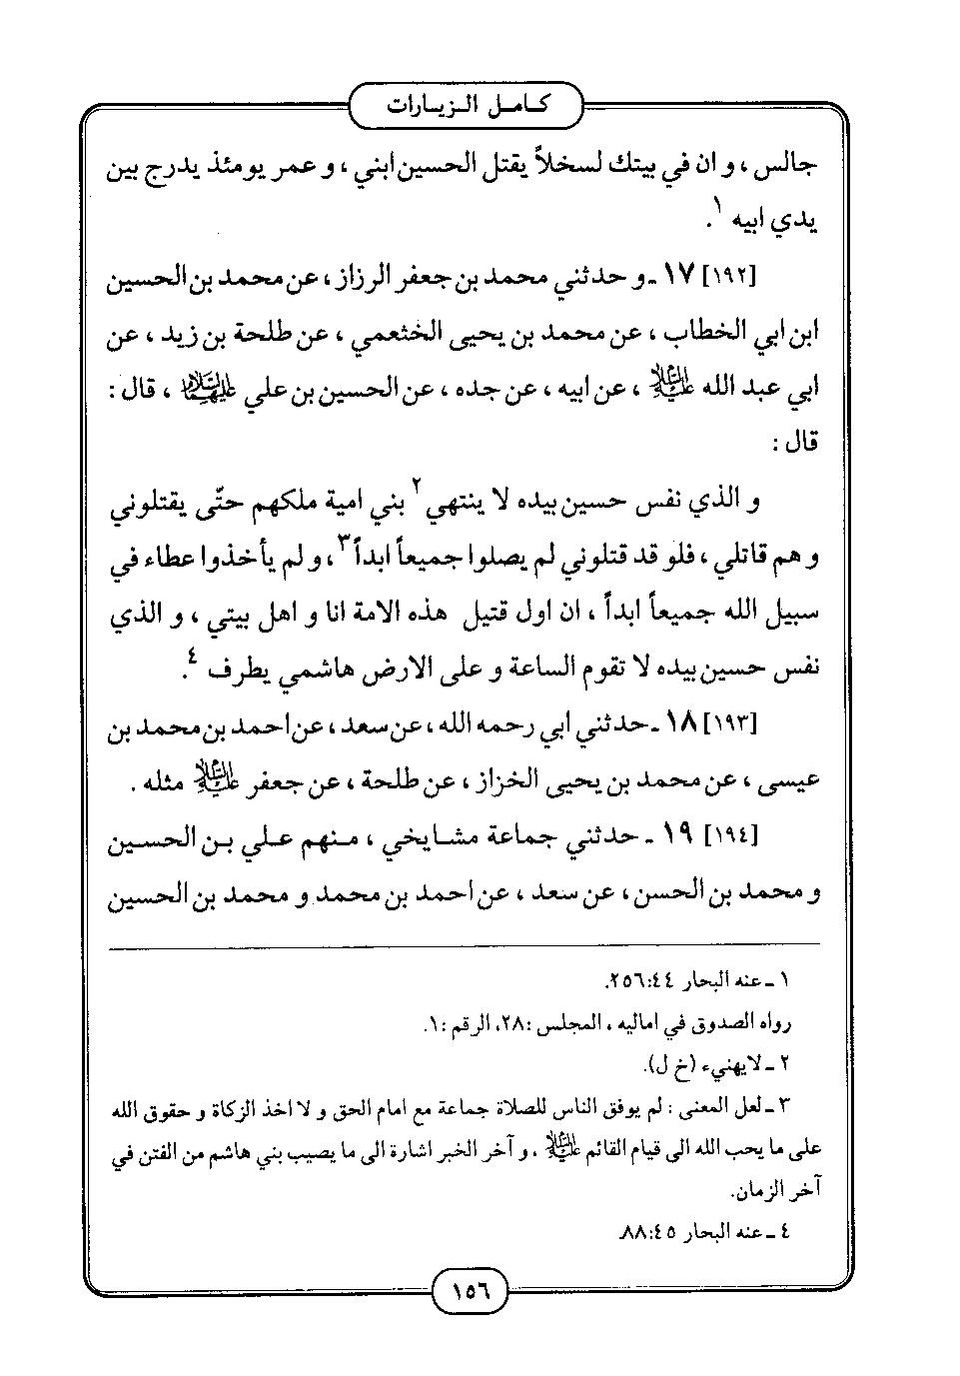 كامل الزيارات
جالس ، و ان في بيتك لسخلاً يقتل الحسين ابني ، و عمر يومئذ يدرج بين
يدي ابيه ١.
[١٩٢] ١٧ ـ و حدثني محمد بن جعفر الرزاز ، عن محمد بن الحسين
ابن ابي الخطاب ، عن محمد بن يحيى الخثعمي ، عن طلحة بن زيد ، عن
ابي عبد الله عليه السلام ، عن ابيه ، عن جده ، عن الحسين بن علي عليهما السلام ، قال :
قال :
و الذي نفس حسين بيده لا ينتهي ٢ بني امية ملكهم حتّى يقتلوني
و هم قاتلي ، فلو قد قتلوني لم يصلوا جميعاً ابداً ٣ ، و لم يأخذوا عطاء في
سبيل الله جميعاً ابداً ، ان اول قتيل هذه الامة انا و اهل بيتي ، و الذي
نفس حسين بيده لا تقوم الساعة و على الارض هاشمي يطرف ٤.
[١٩٣] ١٨ ـ حدثني ابي رحمه الله ، عن سعد ، عن احمد بن محمد بن
عيسى ، عن محمد بن يحيى الخزاز ، عن طلحة ، عن جعفر عليه السلام مثله .
[١٩٤] ١٩ ـ حدثني جماعة مشايخي ، منهم علي بن الحسين
و محمد بن الحسن ، عن سعد ، عن احمد بن محمد و محمد بن الحسين
١ ـ عنه البحار ٤٤:٢٥٦.
رواه الصدوق في اماليه ، المجلس :٢٨، الرقم :١.
٢ ـ لا يهنيء (خ ل).
٣ ـ لعل المعنى : لم يوفق الناس للصلاة جماعة مع امام الحق و لا اخذ الزكاة و حقوق الله
على ما يحب الله الى قيام القائم عليه السلام ، و آخر الخبر اشارة الى ما يصيب بني هاشم من الفتن في
آخر الزمان.
٤ ـ عنه البحار ٤٥:٨٨.
١٥٦